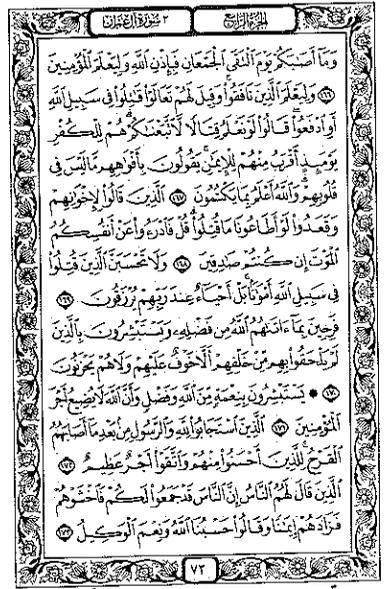 ٣ سورة آل عمران
الجزء الرابع
وَمَا أَصَابَكُمْ يَوْمَ الْتَقَى الْجَمْعَانِ فَبِإِذْنِ اللَّهِ وَلِيَعْلَمَ الْمُؤْمِنِينَ
١٦٦ وَلِيَعْلَمَ الَّذِينَ نَافَقُوا وَقِيلَ لَهُمْ تَعَالَوْا قَاتِلُوا فِي سَبِيلِ اللَّهِ
أَوِ ادْفَعُوا قَالُوا لَوْ نَعْلَمُ قِتَالًا لَاتَّبَعْنَاكُمْ هُمْ لِلْكُفْرِ
يَوْمَئِذٍ أَقْرَبُ مِنْهُمْ لِلْإِيمَانِ يَقُولُونَ بِأَفْوَاهِهِم مَّا لَيْسَ فِي
قُلُوبِهِمْ وَاللَّهُ أَعْلَمُ بِمَا يَكْتُمُونَ ١٦٧ الَّذِينَ قَالُوا لِإِخْوَانِهِمْ
وَقَعَدُوا لَوْ أَطَاعُونَا مَا قُتِلُوا قُلْ فَادْرَءُوا عَنْ أَنفُسِكُمُ
الْمَوْتَ إِن كُنتُمْ صَادِقِينَ ١٦٨ وَلَا تَحْسَبَنَّ الَّذِينَ قُتِلُوا
فِي سَبِيلِ اللَّهِ أَمْوَاتًا بَلْ أَحْيَاءٌ عِندَ رَبِّهِمْ يُرْزَقُونَ ١٦٩
فَرِحِينَ بِمَا آتَاهُمُ اللَّهُ مِن فَضْلِهِ وَيَسْتَبْشِرُونَ بِالَّذِينَ
لَمْ يَلْحَقُوا بِهِم مِّنْ خَلْفِهِمْ أَلَّا خَوْفٌ عَلَيْهِمْ وَلَا هُمْ يَحْزَنُونَ
١٧٠ ۞ يَسْتَبْشِرُونَ بِنِعْمَةٍ مِّنَ اللَّهِ وَفَضْلٍ وَأَنَّ اللَّهَ لَا يُضِيعُ أَجْرَ
الْمُؤْمِنِينَ ١٧١ الَّذِينَ اسْتَجَابُوا لِلَّهِ وَالرَّسُولِ مِن بَعْدِ مَا أَصَابَهُمُ
الْقَرْحُ لِلَّذِينَ أَحْسَنُوا مِنْهُمْ وَاتَّقَوْا أَجْرٌ عَظِيمٌ ١٧٢
الَّذِينَ قَالَ لَهُمُ النَّاسُ إِنَّ النَّاسَ قَدْ جَمَعُوا لَكُمْ فَاخْشَوْهُمْ
فَزَادَهُمْ إِيمَانًا وَقَالُوا حَسْبُنَا اللَّهُ وَنِعْمَ الْوَكِيلُ ١٧٣
٧٢